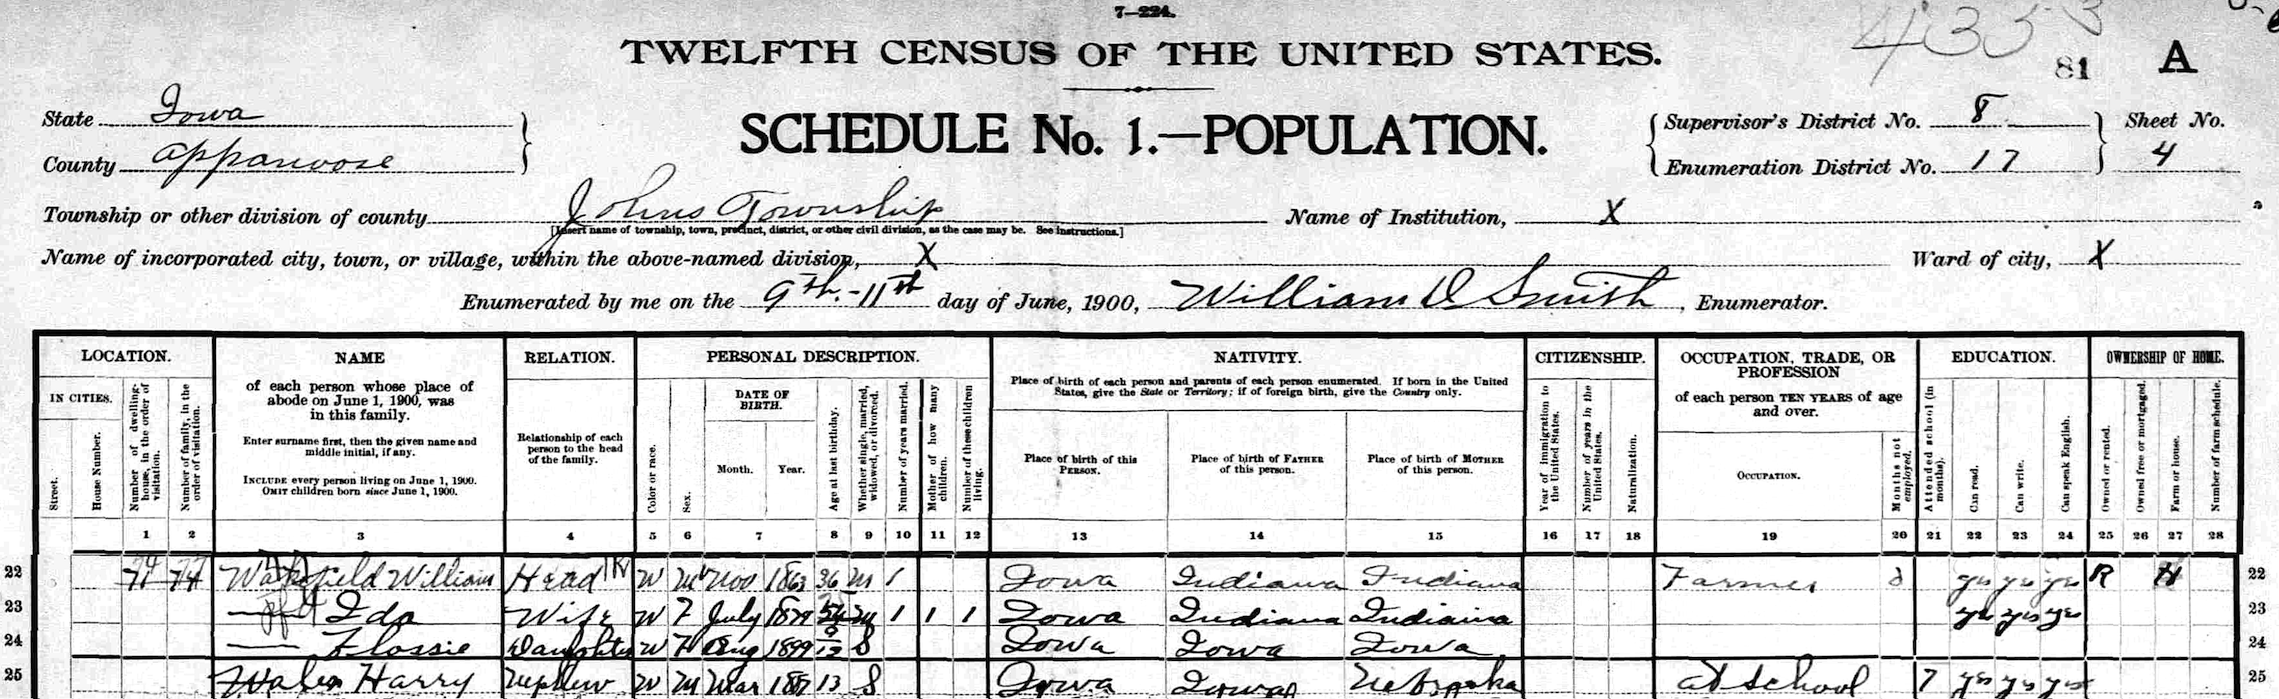 7—224.
4353
81 A
TWELFTH CENSUS OF THE UNITED STATES.
State Iowa
County Appanoose
SCHEDULE No. 1.—POPULATION.
Supervisor's District No. 8
Enumeration District No. 17
Sheet No.
4
Township or other division of county Johns Township Name of Institution, X
[Insert name of township, town, precinct, district, or other civil division, as the case may be. See instructions.]
Name of incorporated city, town, or village, within the above-named division, X Ward of city, X
Enumerated by me on the 9th.-11th day of June, 1900, William D Smith, Enumerator.
LOCATION.
IN CITIES.
Street.
House Number.
Number of dwelling-house, in the order of visitation.
Number of family, in the order of visitation.
NAME
of each person whose place of
abode on June 1, 1900, was
in this family.
Enter surname first, then the given name and
middle initial, if any.
INCLUDE every person living on June 1, 1900.
OMIT children born since June 1, 1900.
RELATION.
Relationship of each
person to the head
of the family.
PERSONAL DESCRIPTION.
Color or race.
Sex.
DATE OF
BIRTH.
Month. Year.
Age at last birthday.
Whether single, married, widowed, or divorced.
Number of years married.
Mother of how many children.
Number of these children living.
NATIVITY.
Place of birth of each person and parents of each person enumerated. If born in the United
States, give the State or Territory; if of foreign birth, give the Country only.
Place of birth of this
PERSON.
Place of birth of FATHER
of this person.
Place of birth of MOTHER
of this person.
CITIZENSHIP.
Year of immigration to the United States.
Number of years in the United States.
Naturalization.
OCCUPATION, TRADE, OR
PROFESSION
of each person TEN YEARS of age
and over.
OCCUPATION.
Months not employed.
EDUCATION.
Attended school (in months).
Can read.
Can write.
Can speak English.
OWNERSHIP OF HOME.
Owned or rented.
Owned free or mortgaged.
Farm or house.
Number of farm schedule.
1 2 3 4 5 6 7 8 9 10 11 12 13 14 15 16 17 18 19 20 21 22 23 24 25 26 27 28
22 Wakefield William Head W M Nov 1863 36 M 1 Iowa Indiana Indiana Farmer 0 yes yes yes R H 22
23 — Ida Wife W F July 1879 M 1 1 1 Iowa Indiana Indiana yes yes yes 23
24 — Flossie Daughter W F Aug 1899 9/12 S Iowa Iowa Iowa 24
25 Harry Nephew W M Mar 13 S Iowa Iowa Nebraska at school 7 yes yes yes 25